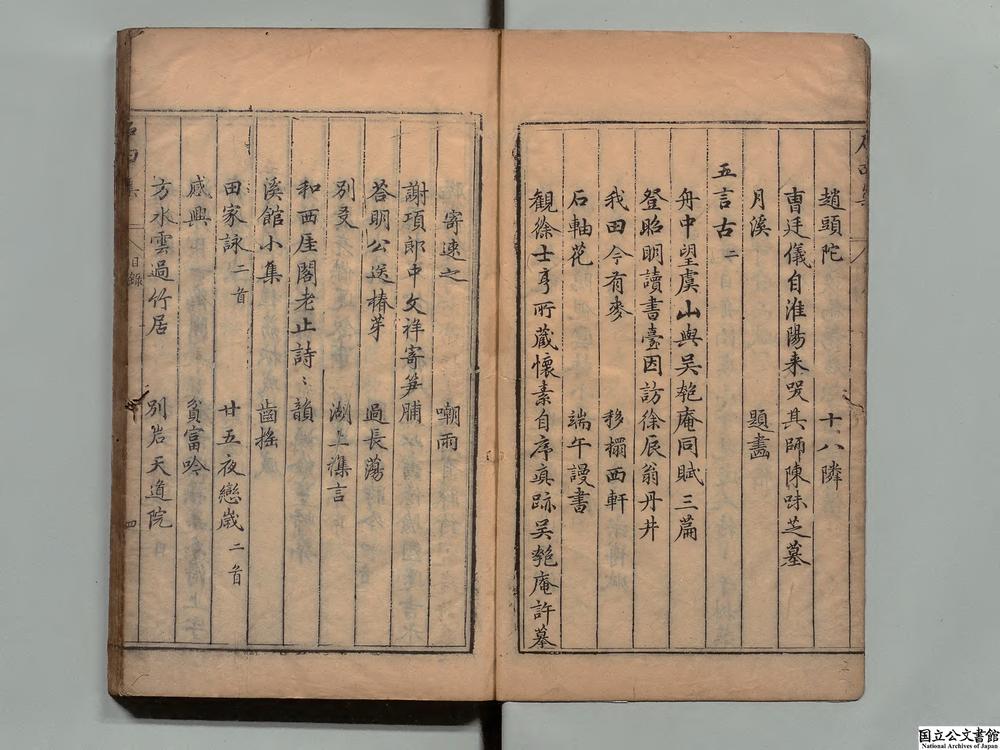 趙頭陀　十八隣
曹廷儀自淮陽来哭其師陳味芝墓
月溪　題畵
五言古二
舟中望虞山與吴匏庵同賦三篇
登昭明讀書臺因訪徐辰翁丹井
我田今有麥　移榻西軒
石軸花　端午謾書
観徐士亨所蔵懐素自序真跡吴匏庵許摹
寄速之　嘲雨
謝項郎中文祥寄笋脯
荅明公送椿芽　過長蕩
別爻　湖上襍言
和西厓閣老止詩〻韻
溪館小集　齒揺
田家詠二首　廿五夜戀歳二首
感興　貧富吟
方水雲過竹居　別岩天道院
石田集
目録
四
国立公文書館
National Archives of Japan